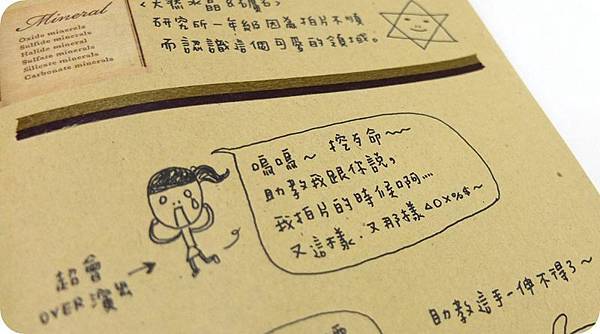 Mineral
Oxide minerals
Sulfide minerals
Halide mineral
Sulfate minerals
Silicate minerals
Carbonate minerals
<天然水晶&礦石>
研究所一年級因為拍片不順
而認識這個可愛的領域。
嗚嗚~ 挖歹命~~
助教我跟你說,
我拍片的時候啊....
又這樣、又那樣△○×%$~
超會
OVER演出
助教這手一伸不得了~